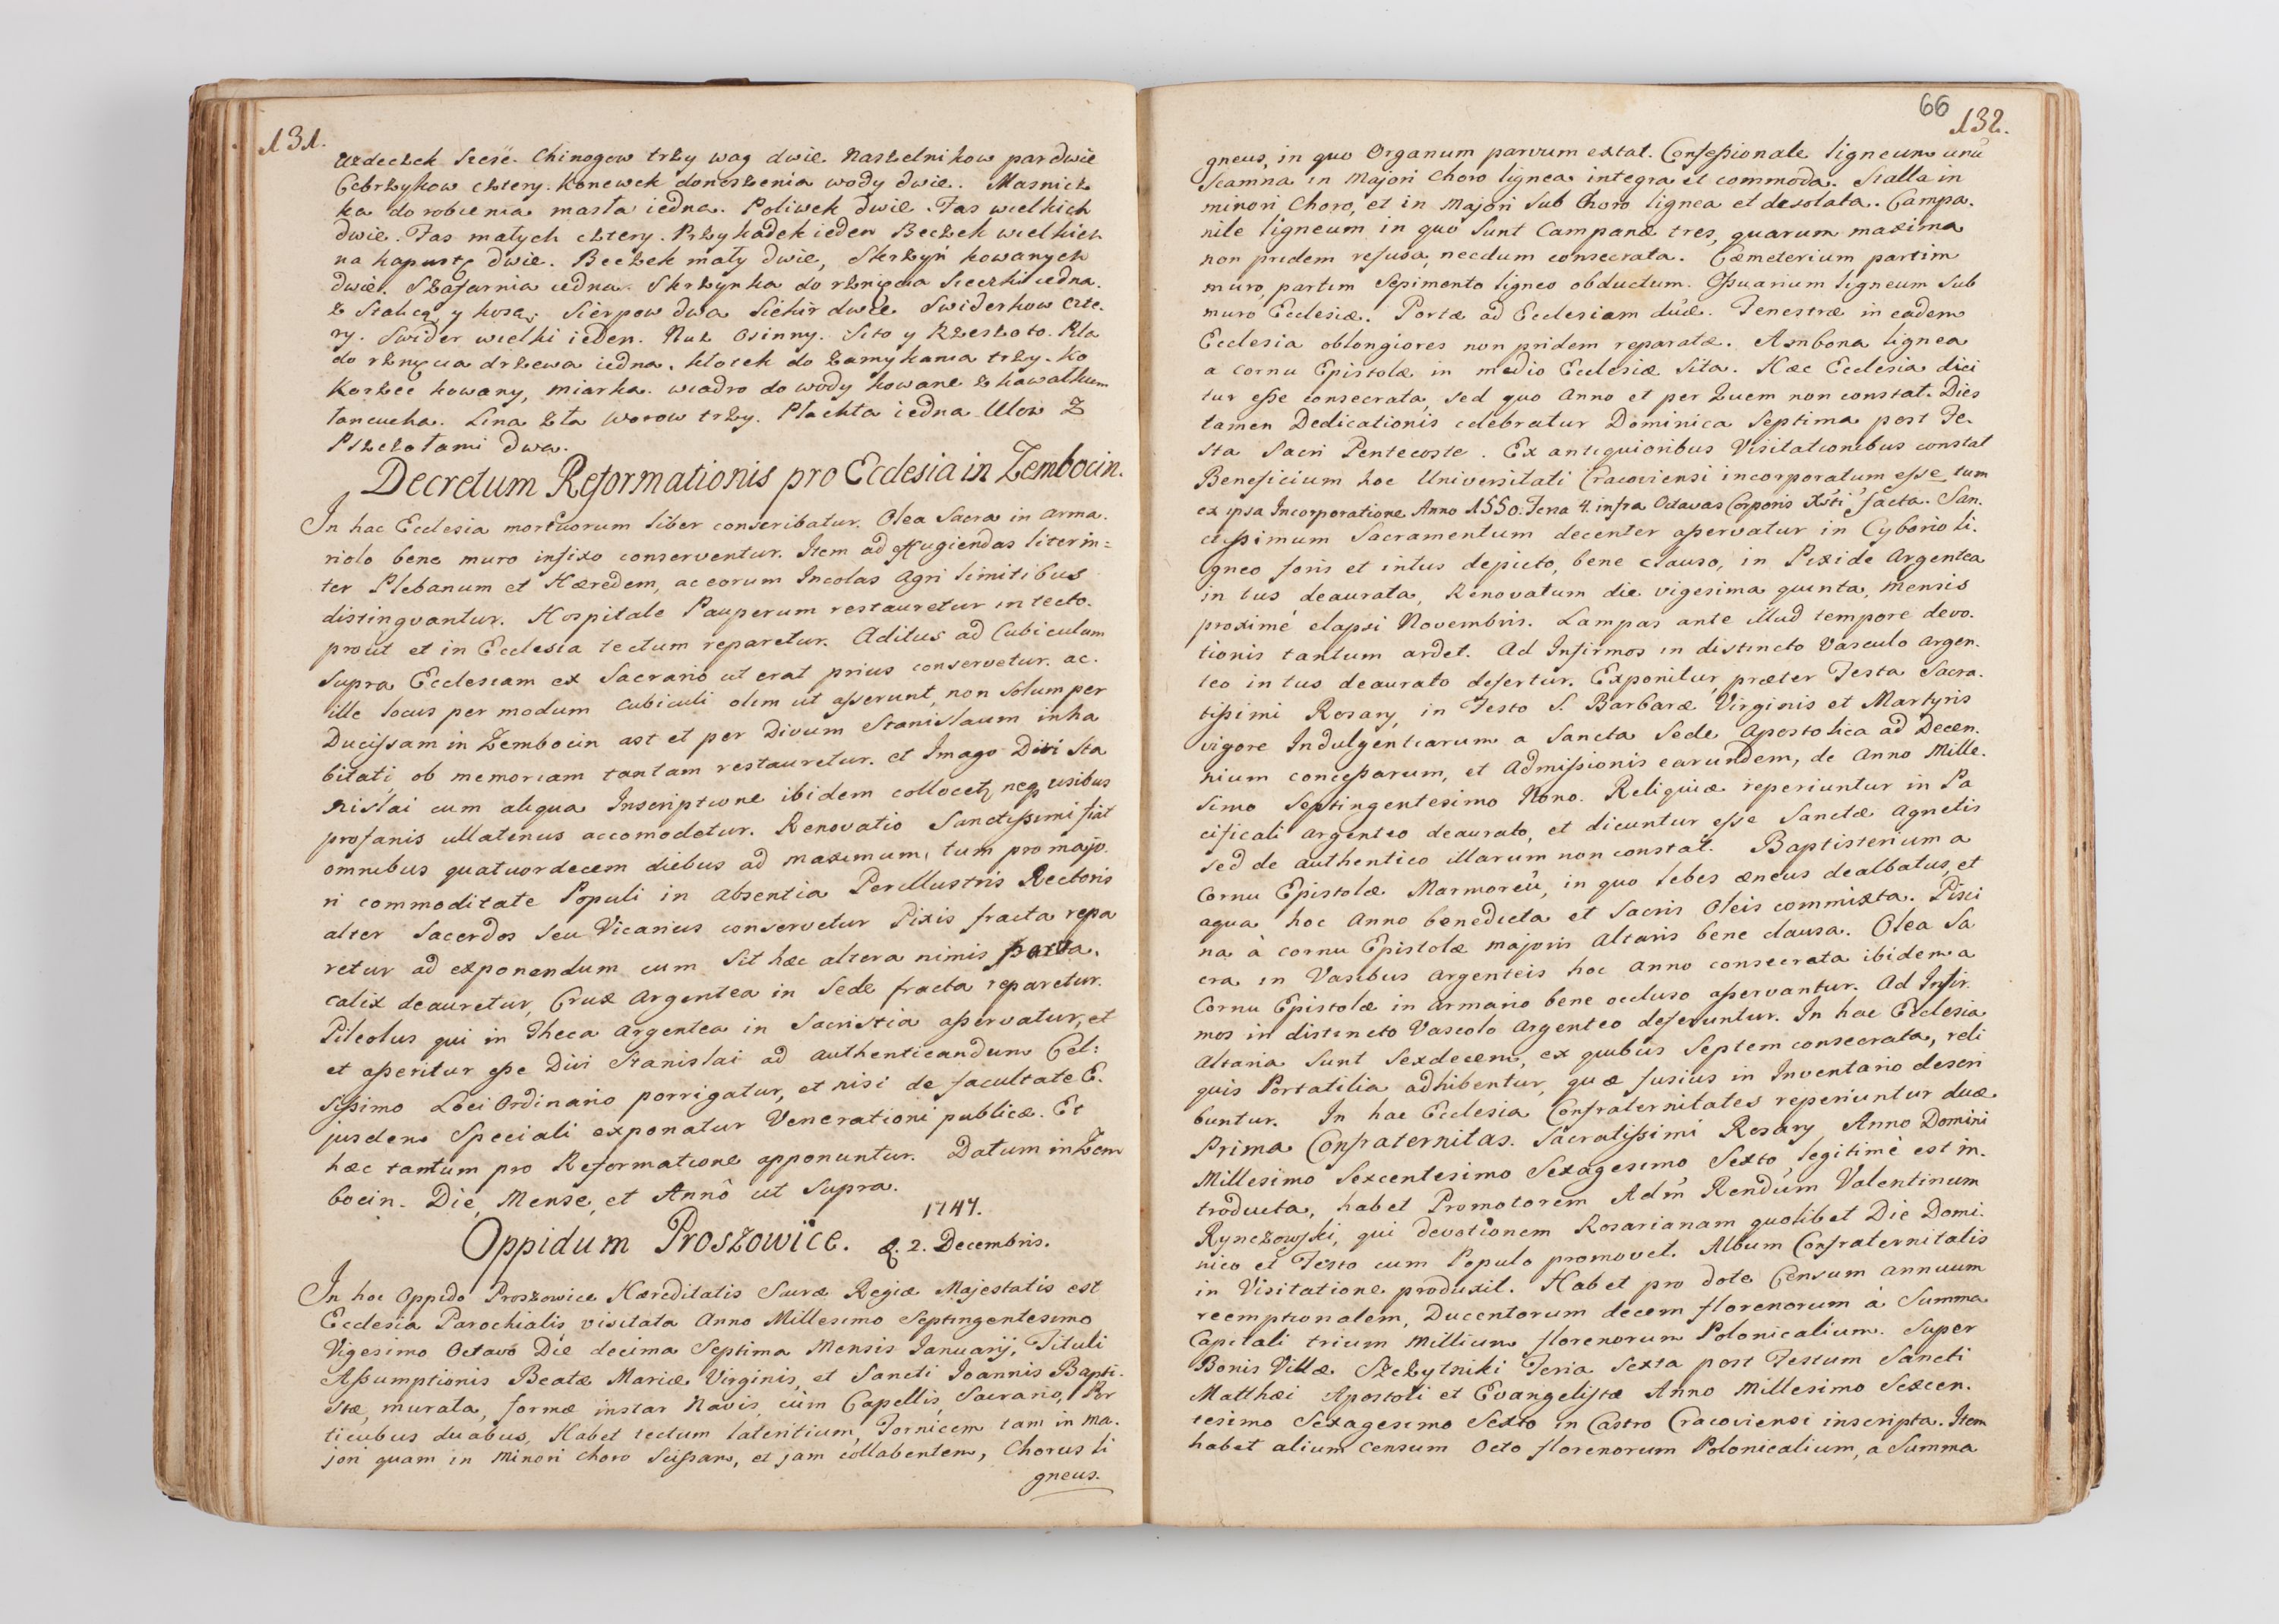 131.
uzdeczek szesc. Chinogow trzy wag dwie. Naszelnikow par dwie
Cebrzykow cztery. Konewek donoszenia wody dwie. Masnicz
ka do robienia masła iedna. Poliwek dwie. Fas wielkich
dwie. Fas małych cztery. Przykadek ieden Beczek wielkich
na kapustę dwie. Beczek mały dwie, Skrzyń kowanych
dwie. Szafarnia iedna. Skrzynka do rznięcia Sieczki iedna.
z Stalicą y kosą. Sierpow dwa Siekir dwie Swiderkow czte.
ry. Swider wielki ieden. Nuz Osinny. Sito y Rzeszoto. Pła
do rznięcia drzewa iedna. Klotek do zamykania trzy. Ko
Korzec kowany, miarka. wiadro do wody kowane z kawałkiem
łancucha. Lina zła Worow trzy. Płachta iedna Ulow Z
Pszczołami dwa.
Decretum Reformationis pro Ecclesia in Zembocin.
In hac Ecclesia mortuorum liber conscribatur. Olea Sacra in arma.
riolo bene muro infixo conserventur. Item ad effugiendas lites in=
ter Plebanum et Hæredem, ac eorum Incolas agri limitibus
distingvantur. Hospitale Pauperum restauretur in tecto.
prout et in Ecclesia tectum reparetur. Aditus ad Cubiculum
supra Ecclesiam ex Sacrario ut erat prius conservetur. ac.
ille locus per modum Cubiculi olim ut asserunt, non solum per
Ducissam in Zembocin ast et per Divum Stanislaum inha
bitati, ob memoriam tantam restauretur. et Imago Divi Sta
nislai cum aliqua Inscriptione ibidem collocetꝫ neqꝫ usibus
profanis ullatenus accomodetur. Renovatio Sanctissimi fiat
omnibus quatuordecem diebus ad maximum, tum pro majo.
ri commoditate Populi in absentia Perillustris Rectoris
alter Sacerdos seu Vicarius conservetur Pixis fracta repa
retur ad exponendum cum sit hæc altera nimis parva.
calix deauretur, Crux argentea in sede fracta reparetur.
Pileolus qui in Theca argentea in Sacristia asservatur, et
et asseritur esse Divi Stanislai ad authenticandum Cel:
sissimo Loci Ordinario porrigatur, et nisi de facultate E.
jusdem speciali exponatur Venerationi publicæ. Et
hæc tantum pro Reformatione apponuntur. Datum in Zem
bocin. Die, Mense, et Annô ut supra.
1747.
Oppidum Proszowice. d. 2. Decembris.
In hoc Oppido Proszowice Hæreditatis Sacræ Regiæ Majestatis est
Ecclesia Parochialis visitata Anno Millesimo Septingentesimo
Vigesimo Octavo Die decima Septima Mensis Januarij, Tituli
Assumptionis Beatæ Mariæ Virginis, et Sancti Joannis Bapti.
stæ, murata, formæ instar Navis, cum Capellis, Sacrario, Por
ticubus duabus, Habet tectum lateritium, Fornicem tam in ma.
jori quam in minori choro scissam, et jam collabentem, Chorus li
gneus.
66
132.
gneus, in quo Organum parvum extat. Confessionale ligneum unū
Scamna in Majori Choro lignea integra et commoda. Stalla in
minori Choro, et in Majori sub Choro lignea et desolata. Campa.
nile ligneum in quo sunt Campanæ tres, quarum maxima
non pridem refusa, necdum consecrata. Cæmeterium partim
muro, partim Sepimento ligneo obductum. Ossuarium ligneum sub
muro Ecclesiæ. Portæ ad Ecclesiam duæ. Fenestræ in eadem
Ecclesia oblongiores non pridem reparatæ. Ambona lignea
a cornu Epistolæ in medio Ecclesiæ sita. Hæc Ecclesia dici
tur esse consecrata, sed quo Anno et per Quem non constat. Dies
tamen Dedicationis celebratur Dominica Septima post Fe.
sta Sacri Pentecoste. Ex antiquioribus Visitationibus constat
Beneficium hoc Universitati Cracoviensi incorporatum esse, tum
ex ipsa Incorporatione Anno 1550. Feria 4. infra Octavas Corporis Xsti facta. San.
ctissimum Sacramentum decenter asservatur in Cyborio li.
gneo foris et intus depicto, bene clauso, in Pixide argentea
intus deaurata, Renovatum die vigesima quinta, Mensis
proximè elapsi Novembris. Lampas ante illud tempore devo.
tionis tantum ardet. Ad Infirmos in distincto Vasculo argen.
teo intus deaurato defertur. Exponitur præter Festa Sacra.
tissimi Rosary, in Festo S. Barbaræ Virginis et Martyris
vigore Indulgentiarum a Sancta Sede Apostolica ad Decen.
nium concessarum, et admissionis earundem, de Anno Mille.
simo Septingentesimo Nono. Reliquiæ reperiuntur in Pa
cificali argenteo deaurato, et dicuntur esse Sanctæ Agnetis
sed de authentico illarum non constat. Baptisterium a
Cornu Epistolæ Marmoreū, in quo lebes æneus dealbatus, et
aqua hoc Anno benedicta et Sacris Oleis commixta. Pisci
na à cornu Epistolæ majoris Altaris bene clausa. Olea Sa
cra in Vasibus argenteis hoc anno consecrata ibidem a
Cornu Epistolæ in armario bene occluso asservantur. Ad Infir.
mos in distincto Vascolo argenteo deferuntur. In hac Ecclesia
Altaria sunt sexdecem, ex quibus septem consecrata, reli
quis Portatilia adhibentur, quæ fusius in Inventario descri
buntur. In hac Ecclesia Confraternitates reperiuntur duæ
Prima Confraternitas. Sacratissimi Rosary, Anno Domini
Millesimo Sexcentesimo Sexagesimo Sexto, legitimè est in.
troducta, habet Promotorem Adm̄ Rendūm Valentinum
Rynczowski, qui devotionem Rosarianam quolibet Die Domi.
nico et Festo cum Populo promovet. Album Confraternitatis
in Visitatione produxit. Habet pro dote Censum annuum
reemptionalem, Ducentorum decem florenorum à Summa
Capitali trium millium florenorum Polonicalium. Super
Bonis Villæ Szczytniki Feria Sexta post Festum Sancti
Matthæi Apostoli et Evangelistæ Anno Millesimo Sexcen.
tesimo Sexagesimo Sexto in Castro Cracoviensi inscripta. Item
habet alium Censum Octo florenorum Polonicalium, a Summa